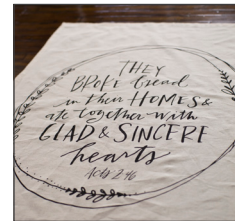 THEY
BROKE bread
in their HOMES &
ate together with
GLAD & SINCERE
hearts
ACTS 2:46